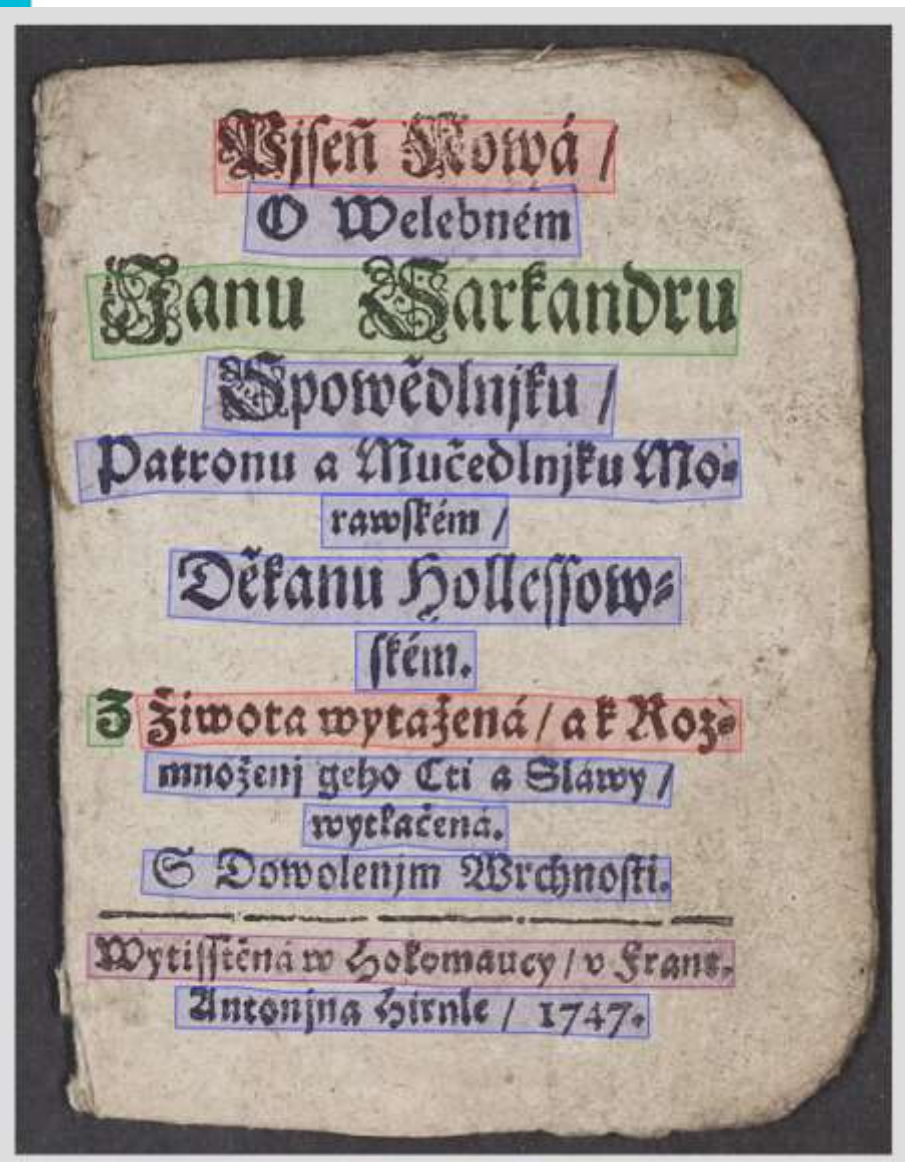 Pjseň Nowá /
O Welebném
Janu Sarkandru
Spowědlnjku /
Patronu a Mučedlnjku Mo⸗
rawském /
Děkanu Hollessow⸗
ském.
Z Žiwota wytažená / a k Roz⸗
množenj geho Cti a Sláwy /
wytlačená.
S Dowolenjm Wrchnosti.
Wytisstěná w Holomaucy / v Frant.
Antonjna Hirnle / 1747.